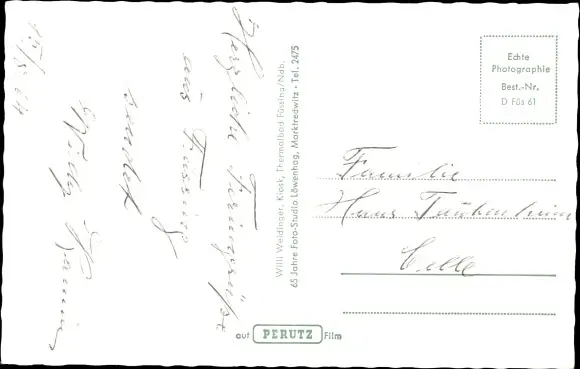 15/5. 64
Herzliche Feriengrüße
aus Füssing
sendet
Willy
Willi Weidinger, Kiosk, Thermalbad Füssing/Ndb.
65 Jahre Foto-Studio Löwenhag, Marktredwitz · Tel. 2475
Echte
Photographie
Best.-Nr.
D Füs 61
Familie
Hans
Celle
auf PERUTZ Film